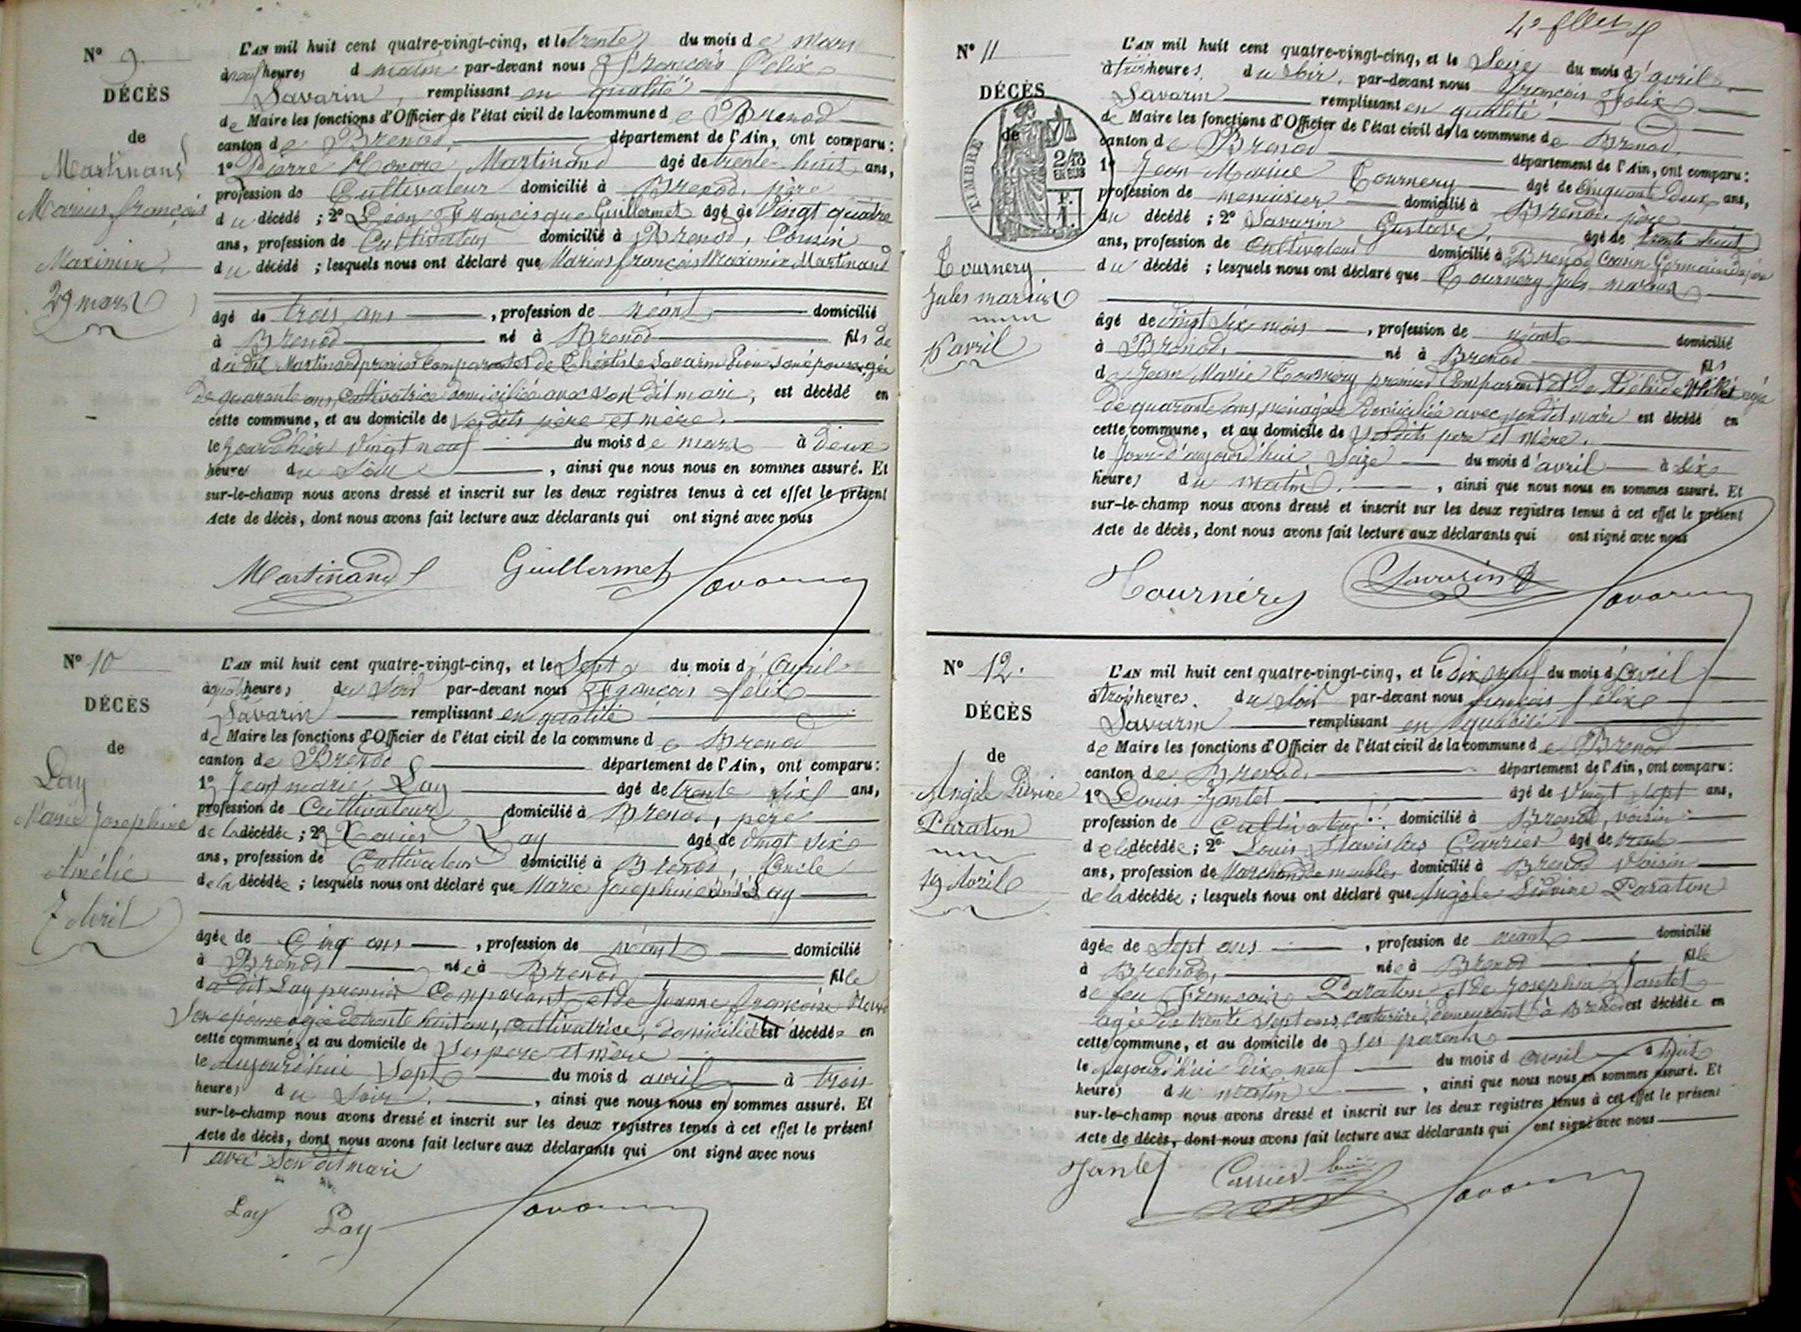 N° 9.
DÉCÈS
de
Martinand
Marius françois
Maximin
29 mars
L'AN mil huit cent quatre-vingt-cinq, et le trente du mois de mars
à neuf heures d matin par-devant nous François Félix
Savarin, remplissant en qualité
de Maire les fonctions d'Officier de l'état civil de la commune de Brenod
canton de Brenod, département de l'Ain, ont comparu :
1° Pierre Honoré Martinand âgé de trente-huit ans,
profession de Cultivateur domicilié à Brenod, père
du décédé ; 2° Léon Francisque Guillermet âgé de Vingt quatre
ans, profession de Cultivateur domicilié à Brenod, Cousin
du décédé ; lesquels nous ont déclaré que Marius françois Maximin Martinand
âgé de trois ans, profession de néant domicilié
à Brenod né à Brenod fils de
du dit Martinand premier Comparant et de Savarin son épouse agée
de quarante ans, Cultivatrice domiciliée avec son dit mari, est décédé en
cette commune, et au domicile de ses dits père et mère.
le jour d'hier vingt neuf du mois de mars à deux
heures du soir, ainsi que nous nous en sommes assuré. Et
sur-le-champ nous avons dressé et inscrit sur les deux registres tenus à cet effet le présent
Acte de décès, dont nous avons fait lecture aux déclarants qui ont signé avec nous
Martinand Guillermet Savarin
N° 10
DÉCÈS
de
Lay
Marie Josephine
Amélie
7 Avril
L'AN mil huit cent quatre-vingt-cinq, et le Sept du mois d'avril
à quatre heures du soir par-devant nous François Félix
Savarin remplissant en qualité
de Maire les fonctions d'Officier de l'état civil de la commune de Brenod
canton de Brenod département de l'Ain, ont comparu :
1° Jean marie Lay âgé de trente six ans,
profession de Cultivateur domicilié à Brenod, père
de la décédée ; 2° Xavier Lay âgé de vingt six
ans, profession de Cultivateur domicilié à Brenod, Oncle
de la décédée ; lesquels nous ont déclaré que Marie Josephine Amélie Lay
âgée de Cinq ans, profession de néant domicilié
à Brenod née à Brenod fille
du dit Lay premier Comparant et de Jeanne françoise
son épouse agée de trente huit ans, Cultivatrice, domiciliée est décédée en
cette commune, et au domicile de ses père et mère
le aujourd'hui Sept du mois d avril à trois
heures du soir, ainsi que nous nous en sommes assuré. Et
sur-le-champ nous avons dressé et inscrit sur les deux registres tenus à cet effet le présent
Acte de décès, dont nous avons fait lecture aux déclarants qui ont signé avec nous
avec son dit mari
Lay Lay Savarin
N° 11
DÉCÈS
de
TIMBRE
2/10
EN SUS
Tournery
Jules marius
16 avril
L'AN mil huit cent quatre-vingt-cinq, et le Seize du mois d'avril
à trois heures du soir, par-devant nous François Félix
Savarin remplissant en qualité
de Maire les fonctions d'Officier de l'état civil de la commune de Brenod
canton de Brenod département de l'Ain, ont comparu :
1° Jean Marie Tournery âgé de Cinquante Deux ans,
profession de menuisier domicilié à Brenod, père
du décédé ; 2° Savarin Gustave, âgé de trente huit
ans, profession de Cultivateur domicilié à Brenod Cousin Germain du père
du décédé ; lesquels nous ont déclaré que Tournery Jules marius
âgé de vingt six mois, profession de néant domicilié
à Brenod, né à Brenod fils
de Jean Marie Tournery premier Comparant et de agée
de quarante ans, ménagère domiciliée avec son dit mari est décédé en
cette commune, et au domicile de ses dits père et mère.
le Jour d'aujourd'hui Seize du mois d'avril à six
heures du matin, ainsi que nous nous en sommes assuré. Et
sur-le-champ nous avons dressé et inscrit sur les deux registres tenus à cet effet le présent
Acte de décès, dont nous avons fait lecture aux déclarants qui ont signé avec nous
Tournéry Savarin G Savarin
N° 12.
DÉCÈS
de
Angèle
Paraton
19 Avril
L'AN mil huit cent quatre-vingt-cinq, et le dix neuf du mois d'avril
à trois heures du soir par-devant nous françois félix
Savarin remplissant en qualité
de Maire les fonctions d'Officier de l'état civil de la commune de Brenod
canton de Brenod, département de l'Ain, ont comparu :
1° Louis Jantet âgé de vingt sept ans,
profession de Cultivateur domicilié à Brenod, voisin
de la décédée ; 2° Louis Stanislas Carrier âgé de trente
ans, profession de Marchand de meubles domicilié à Brenod Voisin
de la décédée ; lesquels nous ont déclaré que Angèle Paraton
âgée de Sept ans, profession de néant domicilié
à Brenod, née à Brenod fille
de feu François Paraton et de Josephte Jantet
agée de trente sept ans, Couturière, demeurant à Brenod est décédée en
cette commune, et au domicile de ses parents
le aujourd'hui dix neuf du mois d avril à huit
heures du matin, ainsi que nous nous en sommes assuré. Et
sur-le-champ nous avons dressé et inscrit sur les deux registres tenus à cet effet le présent
Acte de décès, dont nous avons fait lecture aux déclarants qui ont signé avec nous
Jantet Carrier Louis Savarin